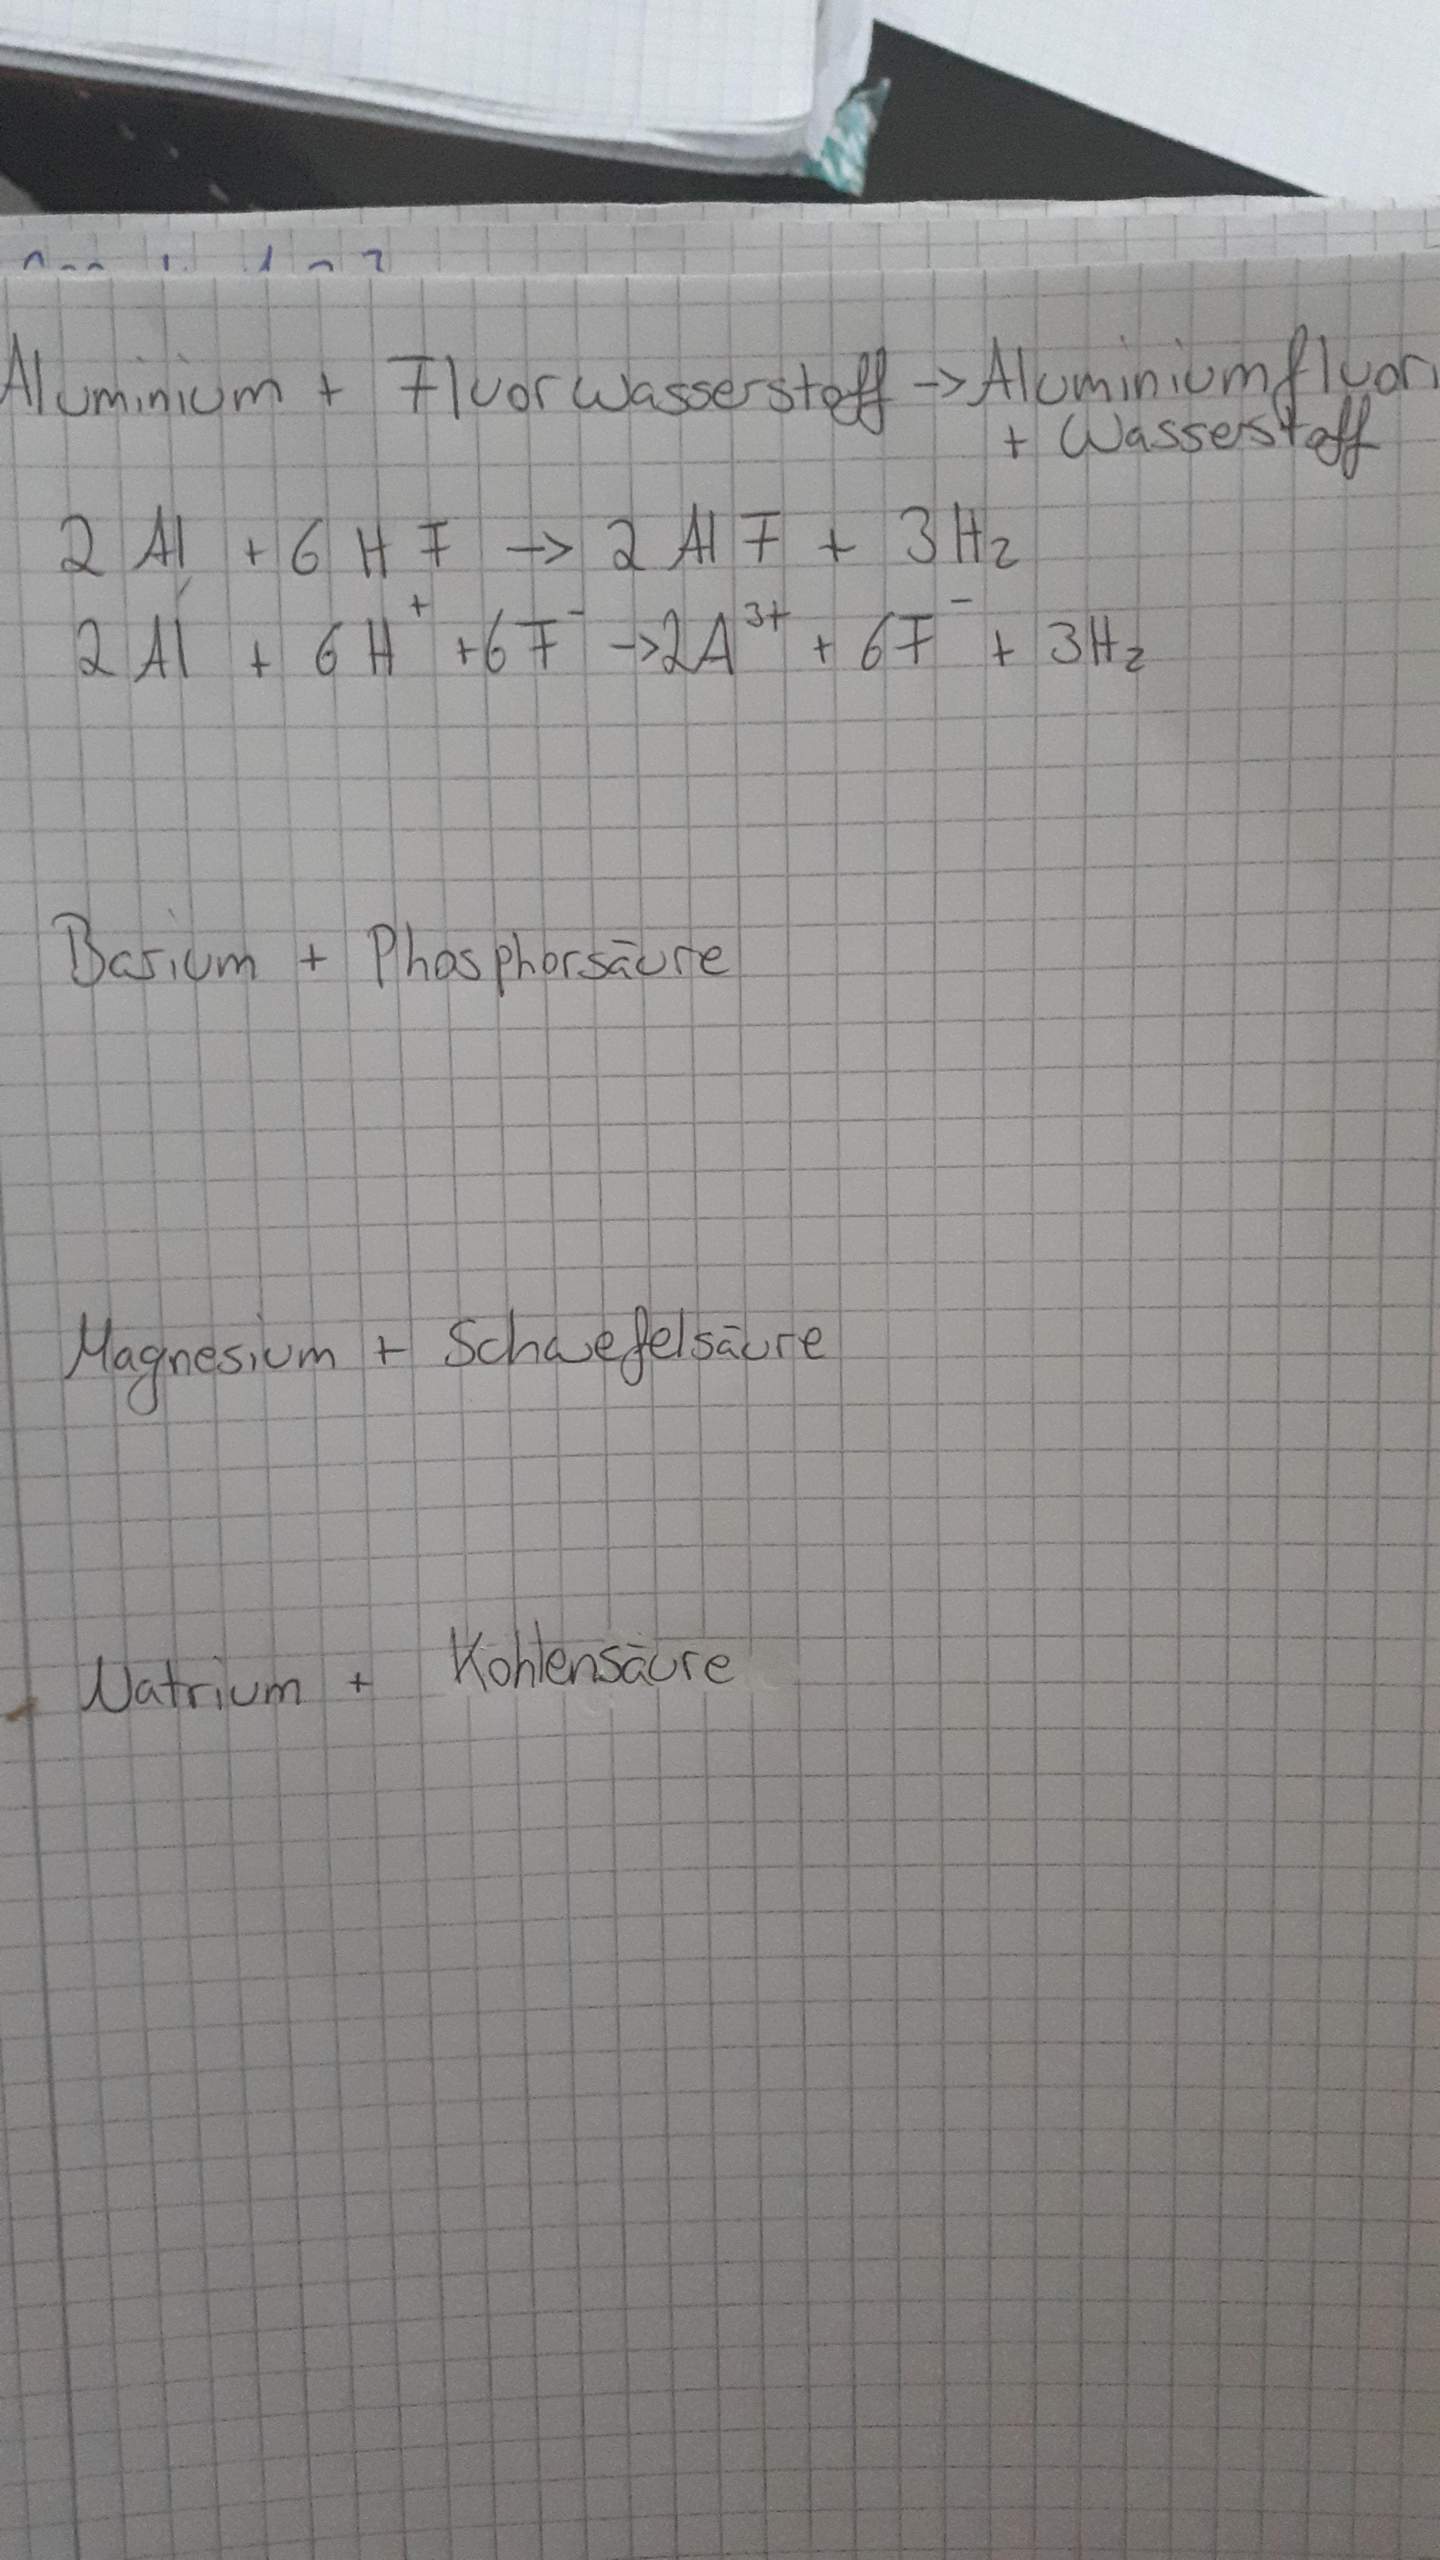 Aluminium + Fluorwasserstoff → Aluminiumfluori
+ Wasserstoff
2 Al + 6 H F → 2 Al F + 3 H₂
2 Al + 6 H⁺ + 6 F⁻ → 2 A³⁺ + 6 F⁻ + 3 H₂
Barium + Phosphorsäure
Magnesium + Schwefelsäure
Natrium + Kohlensäure